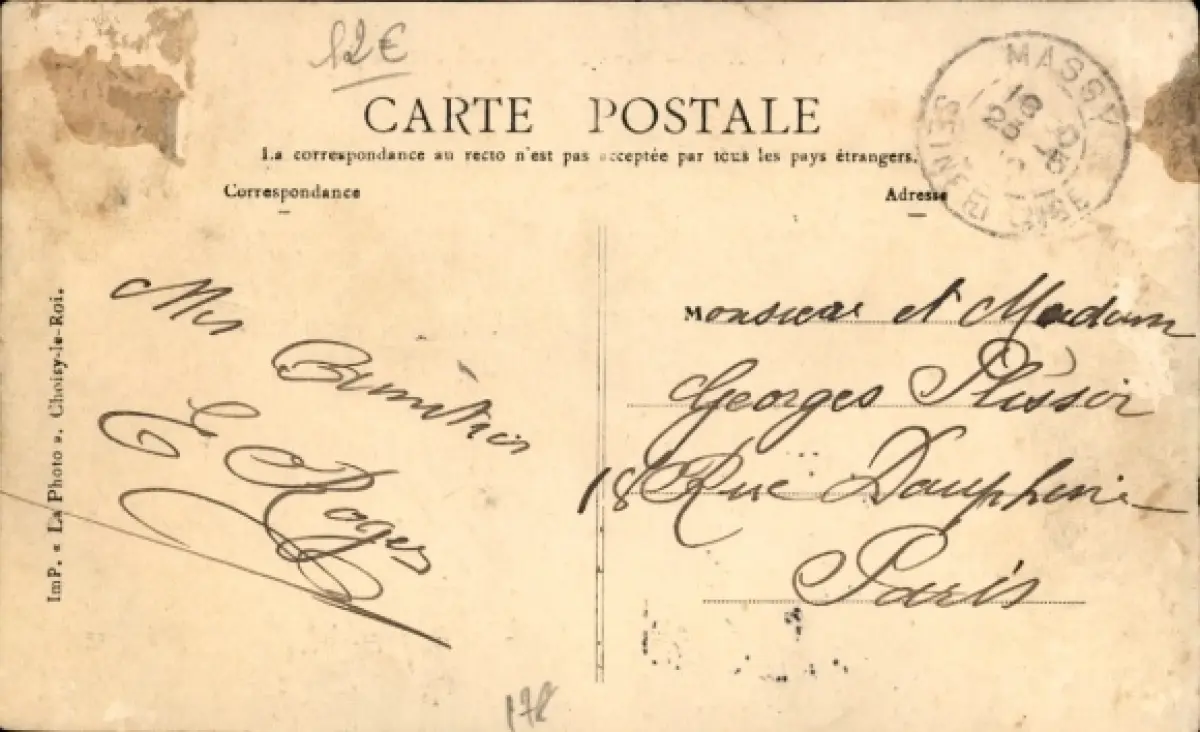 12€
CARTE POSTALE
La correspondance au recto n'est pas acceptée par tous les pays étrangers.
Correspondance
Adresse
MASSY
SEINE ET OISE
ImP. « La Photo ». Choisy-le-Roi.
Mes
E Roger
Monsieur et Madam
Georges
18 Rue Dauphine
Paris
178